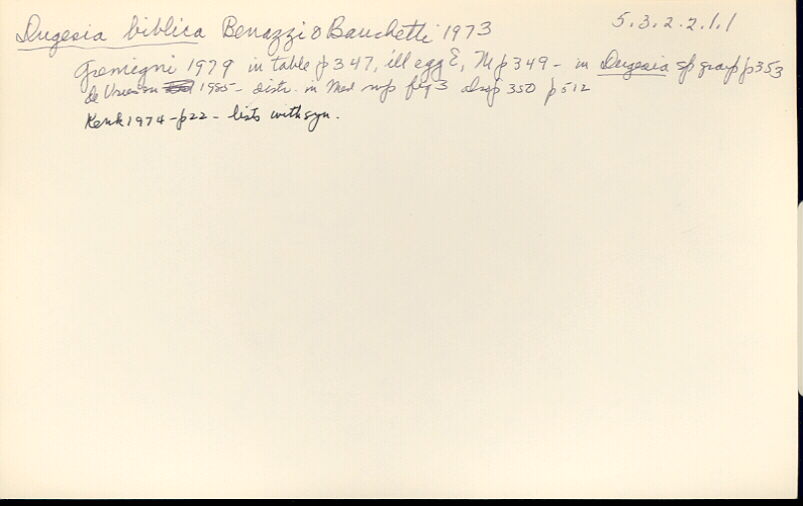 Dugesia biblica Benazzi & Banchetti 1973 5.3.2.2.1.1
Gremigni 1979 in table p347, ill egg E, M p349 - in Dugesia sp group p353
de Vries 1985 - distr. in Med map fig 3 p350 p512
Kenk 1974 - p22 - lists with syn.